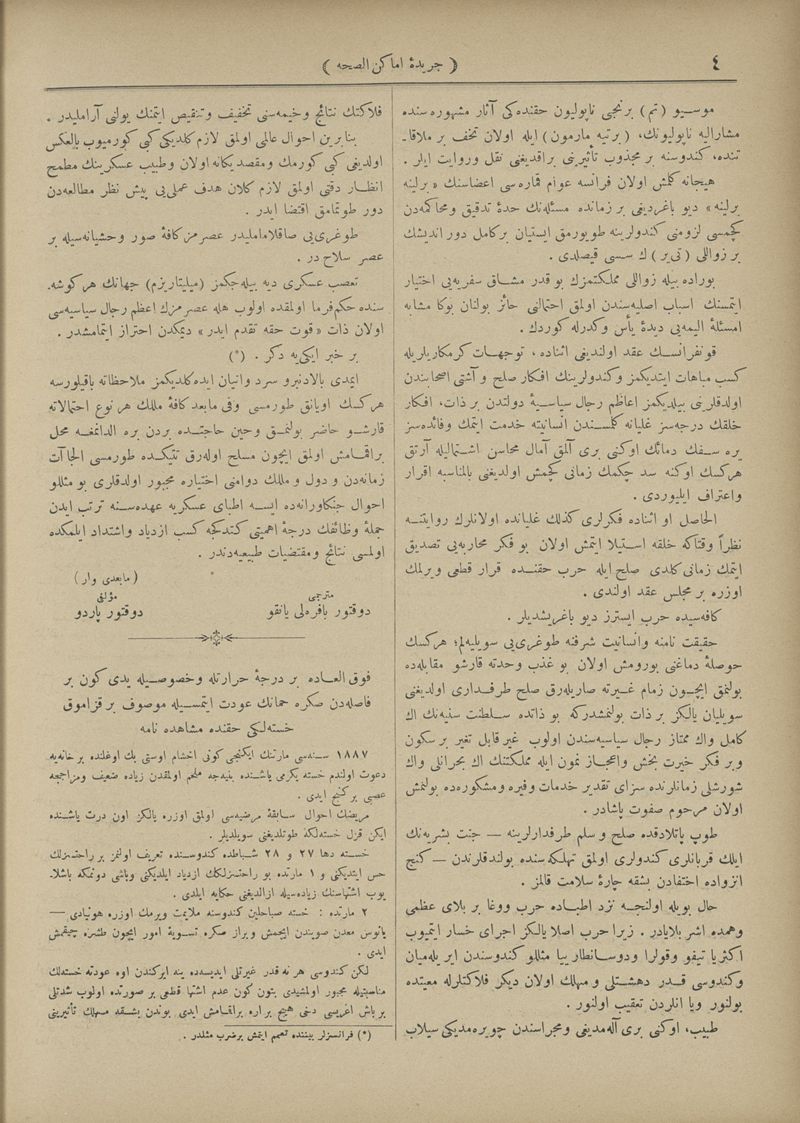 ٤
﴿ جريدهٔ اماكن الصحه ﴾
موسيو (تم) برنجى ناپوليون حقنده كى آثار مشهوره سنده
مشاراليه ناپوليونك، (برتيه مارمون) ايله اولان تخف بر ملاقا-
تنده، كندوسنه بر مجذوب تأثيرنى براقديغنى نقل وروايت ايلر .
هيجانه كلمش اولان فرانسه عوام قماره سى اعضاسنك « برلينه
برلينه » ديو باغرديغى بر زمانده مسئله نك حدهٔ تدقيق ومحاكمه دن
كچمسى لزومنى كندولرينه طويورمق ايستيان بركامل دور انديشك
بر زواللى (تىير) ك سسى قيصلدى .
بوراده بيله زواللى مملكتمزك بو قدر مشاق سفريه يى اختيار
ايتمسنك اسباب اصليه سندن اولمق احتمالنى حائز بولنان بوكا مشابه
امسئلهٔ اليمه يى ديدهٔ يأس وكدرله كوردك .
قونفرانسك عقد اولنديغى اثناده ، توجهات كرمكاريلريله
كسب مباهات ايتديكمز وكندولرينك افكار صلح و آشتى اصحابندن
اولدقلرينى بيلديكمز اعاظم رجال سياسيهٔ دولتدن بر ذات، افكار
خلقك درجه سز غليانه كلمسندن انسانيته خدمت ايتمك وفائده سز
يره سفك دمائك اوكنى برى آلمق آمال محاسن اشتماليله آرتق
هركسك اوكنه سد چكمك زمانى كچمش اولديغنى بالمناسبه اقرار
واعتراف ايليوردى .
الحاصل او اثناده فكرلرى كذلك غليانده اولانلرك روايتنه
نظراً وقتاكه خلقه استيلا ايتمش اولان بو فكر محاربه يى تصديق
ايتمك زمانى كلدى صلح ايله حرب حقنده قرار قطعى ويرلمك
اوزره بر مجلس عقد اولندى .
كافه سيده حرب ايسترز ديو باغريشديلر .
حقيقت نامنه وانسانيت شرفنه طوغرى يى سويليه لم؛ هركسك
حوصلهٔ دماغنى بورومش اولان بو غذب وحدته قارشو مقابله ده
بولنمق ايچون زمام غيرته صاريله رق صلح طرفدارى اولديغنى
سويليان يالكز بر ذات بولنمشدركه بو ذاتده سلطنت سنيه نك اك
كامل واك ممتاز رجال سياسيه سندن اولوب غير قابل تغير بر سكون
وبر فكر خيرت بخش واعجاز نمون ايله مملكتنك اك بحرانلى واك
شورشلى زمانلرنده سزاى تقدير خدمات وفيره ومشكوره ده بولنمش
اولان مرحوم صفوت پاشادر .
طوپ پاتلادقده صلح و سلم طرفدارلرينه — جنت بشريه نك
ايلك قربانلرى كندولرى اولمق تهلكه سنده بولندقلرندن — كنج
انزواده اختفادن بشقه چارهٔ سلامت قالمز .
حال بويله اولنجه نزد اطباده حرب ووغا بر بلاى عظمى
وهمده اشر بلايادر . زيرا حرب اصلا يالكز اجراى خسار ايتميوب
اكثريا تيفو وقولرا ودوسانطاريا مثللو كندوسندن ايريله ميان
وكندوسى قدر دهشتلى و مهلك اولان ديكر فلاكتلرله معيتده
بولنور ويا انلردن تعقيب اولنور .
طبيب، اوكنى برى آله مديغى ومجراسندن چويره مديكى سيلاب
فلاكتك نتائج وخيمه سنى تخفيف وتنقيص ايتمنك يولنى آراملیدر .
بنابرين احوال عالمى اولمق لازم كلديكى كبى كورميوب بالعكس
اولديغى كبى كورمك ومقصد يكانه اولان وطبيب عسكرينك مطمح
انظار دقتى اولمق لازم كلان هدف عملى يى پيش نظر مطالعه دن
دور طوتمامق اقتضا ايدر .
طوغرى يى صاقلاماملیدر عصرمز كافهٔ صور وحشيانه سيله بر
عصر سلاح در .
تعصب عسكرى ديه بيله جكمز (ميليتاريزم) جهانك هر كوشه-
سنده حكمفرما اولمقده اولوب هله عصرمزك اعظم رجال سياسيه سى
اولان ذات « قوت حقه تقدم ايدر » ديمكدن احتراز ايتمامشدر .
بر خبر ايكى يه دكر . (*)
ايمدى بالادنبرو سرد واتيان ايده كلديكمز ملاحظاته باقيلورسه
هركسك اويانق طورمسى وفى مابعد كافهٔ مللك هر نوع احتمالاته
قارشو حاضر بولنمق وحين حاجتده بردن بره الدانمغه محل
براقمامش اولمق ايچون مسلح اوله رق تتيكده طورمسى الجاآت
زمانه دن و دول و مللك دوامنى اختياره مجبور اولدقلرى بو مثللو
احوال جنكاورانه ده ايسه اطباى عسكريه عهده سنه ترتب ايدن
جملهٔ وظائفك درجهٔ اهميتى كتدكجه كسب ازدياد واشتداد ايلمكده
اولمسى نتائج ومقتضيات طبيعيه دندر .
(مابعدى وار)
مترجمى مؤلفى
دوقتور بافره لى يانقو دوقتور پاردو
فوق العاده بر درجهٔ حرارتله وخصوصيله يدى كون بر
فاصله دن صكره حمانك عودت ايتمسيله موصوف بر قزاموق
خسته لكى حقنده مشاهده نامه
١٨٨٧ سنه سى مارتك ايكنجى كونى اخشام اوستى بك اوغلنده بر خانه يه
دعوت اولندم خسته يكرمى ياشنده بنيه جه ملحم اولمقدن زياده ضعيف ومزاجه
عصبى بر كنج ايدى .
مريضك احوال سابقهٔ مرضيه سى اولمق اوزره يالكز اون درت ياشنده
ايكن قزل خسته لكه طوتلديغنى سويلديلر .
خسته دها ٢٧ و ٢٨ شباطده كندوسنده تعريف اولنمز بر راحتسزلك
حس ايتديكنى و ١ مارتده بو راحتسزلكك ازدياد ايلديكنى وباشى دونمكه باشلا-
يوب اشتهاسنك زياده سيله ازالديغنى حكايه ايلدى .
٢ مارتده : خسته صباحلين كندوسنه ملايمت ويرمك اوزره هونيادى —
يانوس معدن صويندن ايچمش وبراز صكره تسويهٔ امور ايچون طشره چيقمش
ايدى .
لكن كندوسى هر نه قدر غيرتلى ايديسه ده ينه ايركندن اوه عودته خسته لك
مناسبتيله مجبور اولمشيدى بتون كون عدم اشتها قطعى بر صورتده اولوب شدتلى
بر باش اغريسى دخى هيچ بر اره براقمامش ايدى بوندن بشقه مسهلك تأثيرينى
(*) فرانسزلر بيننده تعمم ايتمش بر ضرب مثلدر .